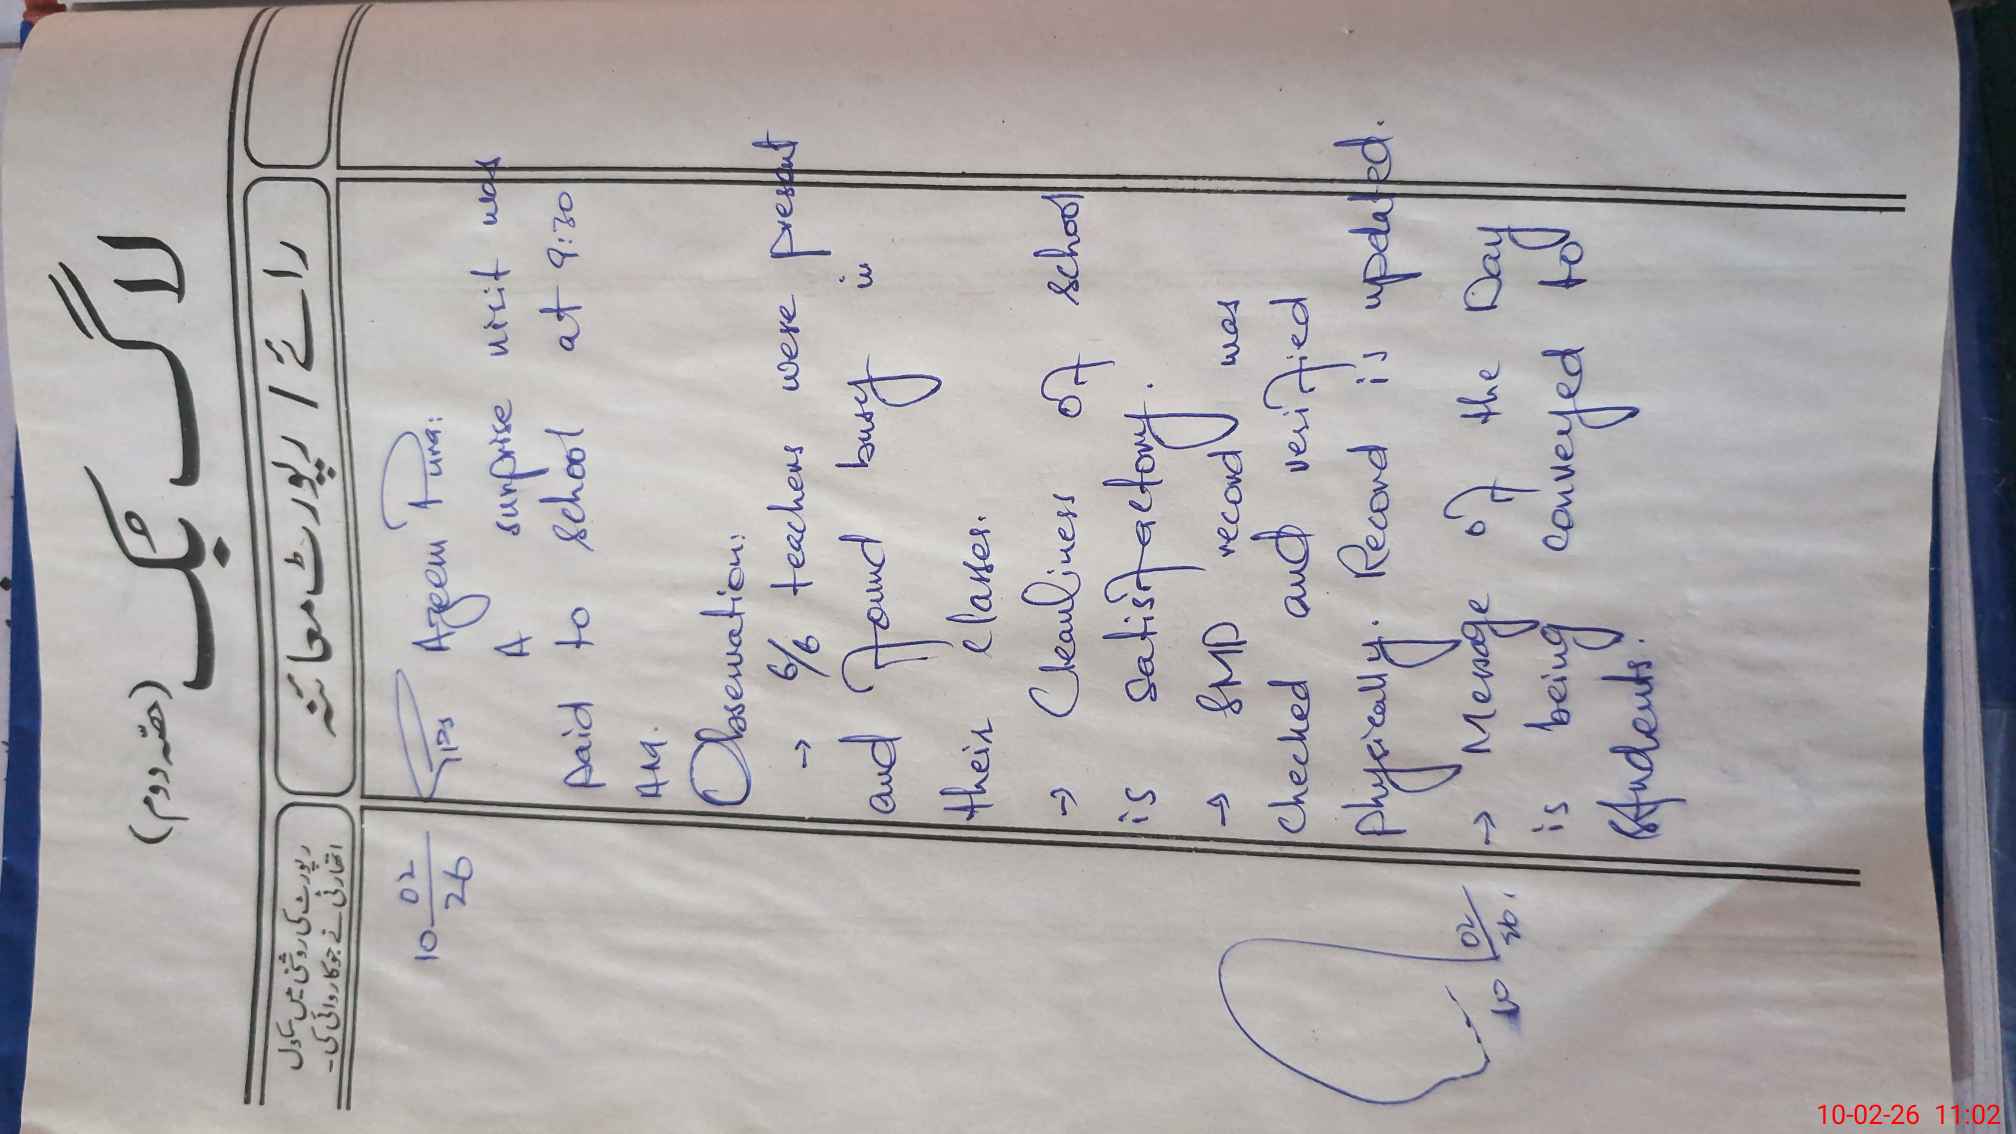 لاگ بک
(حصّہ دوم)
رائے / رپورٹ معائنہ
رپورٹ کی روشنی میں
اتھارٹی نے جو کاروائی کی۔
10 02/26
GPS Azeem Pura:
A surprise visit was
paid to school at 9:30
AM.
Observation:
→ 6/6 teachers were present
and found busy in
their classes.
→ Cleanliness of school
is satisfactory.
→ SMD record was
checked and verified
physically. Record is updated.
→ Message of the Day
is being conveyed to
students.
10 02/26.
10-02-26 11:02